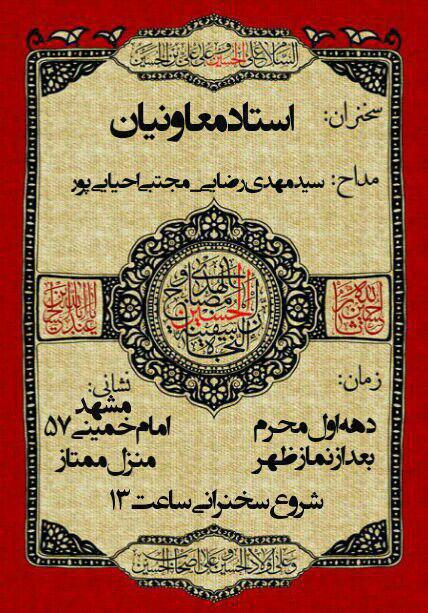 السلام علی الحسین و علی علی بن الحسین
سخنران: استاد معاونیان
مداح: سید مهدی رضایی_مجتبی احیایی پور
الحسین
مصباح الهدی و
سفینة
النجاة
زمان:
دهه اول محرم
بعد از نماز ظهر
نشانی:
مشهد
امام خمینی ۵۷
منزل ممتاز
شروع سخنرانی ساعت ۱۳
و علی اولاد الحسین و علی اصحاب الحسین